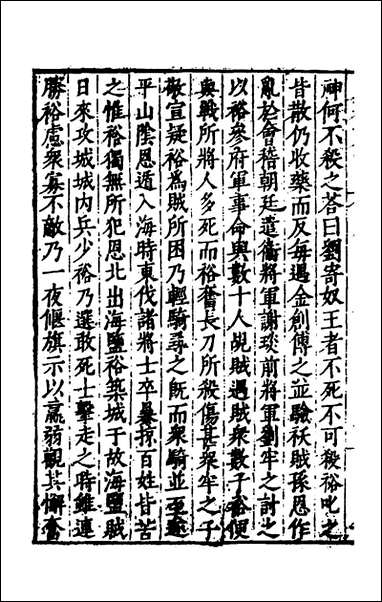 神何不殺之荅曰劉寄奴王者不死不可殺裕叱之
皆散仍收藥而反每遇金創傅之並驗妖賊孫恩作
亂於會稽朝廷遣衞將軍謝琰前將軍劉牢之討之
以裕參府軍事命與數十人覘賊遇賊衆數千裕便
與戰所將人多死而裕奮長刀所殺傷甚衆牢之子
敬宣疑裕爲賊所困乃輕騎尋之旣而衆騎並至遂
平山隂恩遁入海時東伐諸將士卒暴掠百姓皆苦
之惟裕獨無所犯恩北出海鹽裕築城于故海鹽賊
日來攻城城内兵少裕乃選敢死士擊走之時雖連
勝裕慮衆寡不敵乃一夜偃旗示以羸弱觀其懈奮